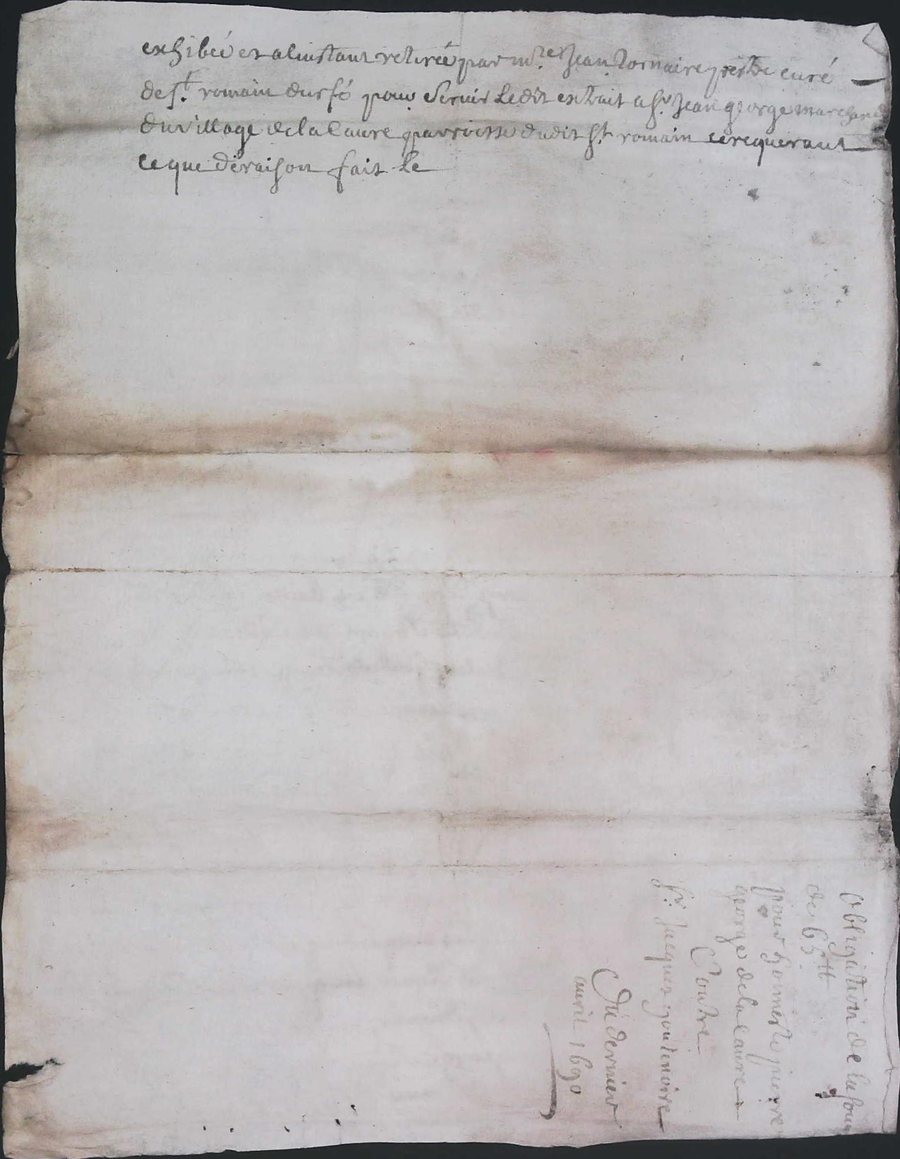 exhibée et alinstant retirée par mre Jean tornaire prestre curé
de St. romain durfé pour servir Ledit extrait a Sr. Jean george marchand
du village de la Caure parroisse dudit St. romain cerequerant
ce que de raison fait Le
obligation de la som
de 65tt
pour honneste pierre
george de la Caure
Contre
Sr. Jacques
Du dernier
auril 1690